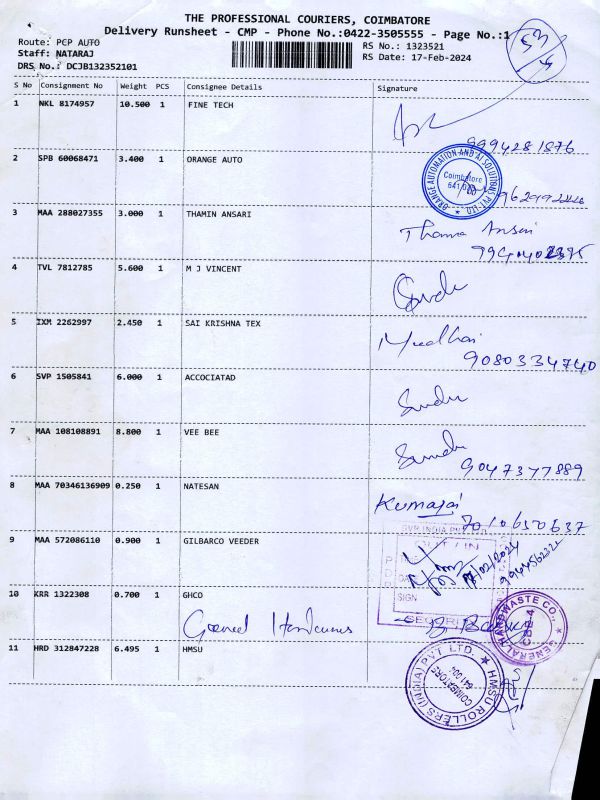 THE PROFESSIONAL COURIERS, COIMBATORE
Delivery Runsheet - CMP - Phone No.:0422-3505555 - Page No.:1
Route: PCP AUTO
Staff: NATARAJ
DRS No.: DCJB132352101
RS No.: 1323521
RS Date: 17-Feb-2024
S No Consignment No Weight PCS Consignee Details Signature
1 NKL 8174957 10.500 1 FINE TECH
9994281876
2 SPB 60068471 3.400 1 ORANGE AUTO
ORANGE AUTOMATION AND AI SOLUTIONS PVT. LTD.
Coimbatore
3 MAA 288027355 3.000 1 THAMIN ANSARI
4 TVL 7812785 5.600 1 M J VINCENT
5 IXM 2262997 2.450 1 SAI KRISHNA TEX
9080334740
6 SVP 1505841 6.000 1 ACCOCIATAD
7 MAA 108108891 8.800 1 VEE BEE
9047377889
8 MAA 70346136909 0.250 1 NATESAN
7010650637
9 MAA 572086110 0.900 1 GILBARCO VEEDER
OUT / IN
SIGN
SECURITY
17/02/2024
10 KRR 1322308 0.700 1 GHCO
GENERAL HARDWASTE CO.,
11 HRD 312847228 6.495 1 HMSU
HMSU ROLLERS (INDIA) PVT LTD.
COIMBATORE
641 004